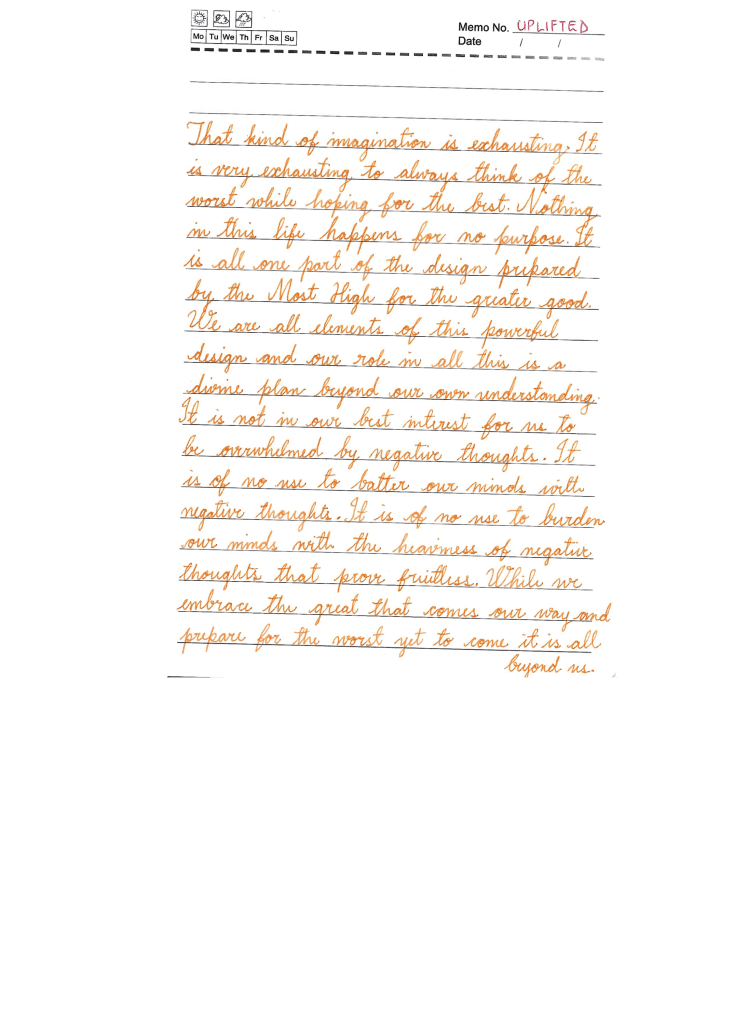 Memo No. UPLIFTED
Mo Tu We Th Fr Sa Su
Date / /
That kind of imagination is exhausting. It
is very exhausting to always think of the
worst while hoping for the best. Nothing
in this life happens for no purpose. It
is all one part of the design prepared
by the Most High for the greater good.
We are all elements of this powerful
design and our role in all this is a
divine plan beyond our own understanding.
It is not in our best interest for us to
be overwhelmed by negative thoughts. It
is of no use to batter our minds with
negative thoughts. It is of no use to burden
our minds with the heaviness of negative
thoughts that prove fruitless. While we
embrace the great that comes our way and
prepare for the worst yet to come it is all
beyond us.